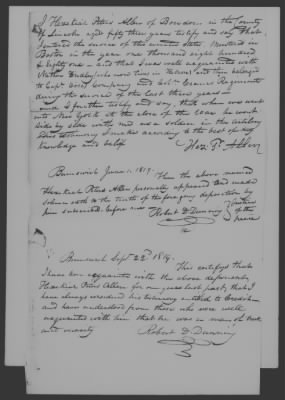 I Hezekiah Peters Allen of Bowdoin, in the County
of Lincoln aged fifty three years testify and say that
I entered the service of the united States, Mustered in
Boston in the year one thousand eight hundred
& Eighty one - and that I was well acquainted with
Nathan who now lives in and then belonged
to Capt Company, and Col Cranes Regiment
during the service of the last three years -
and I further testify and say, that when we went
into New York at the close of the war he went
side by side with me as a soldier in the artillery
This testimony I make according to the best of my
knowledge and belief Hez. P. Allen
Brunswick June 1. 1819. Then the above named
Hezekiah Peters Allen personally appeared and made
solemn oath to the truth of the foregoing deposition by
him subscribed. before me
Robert D. Dunning Justice
of the
peace
Brunswick Septr 22d 1819.
This certifies that
I have been acquainted with the above deponent
Hezekiah Peters Allen for years last past, that I
have always considered his testimony entitled to Credit
and have understood from those who were well
acquainted with him that he was a man of truth
and veracity
Robert D. Dunning